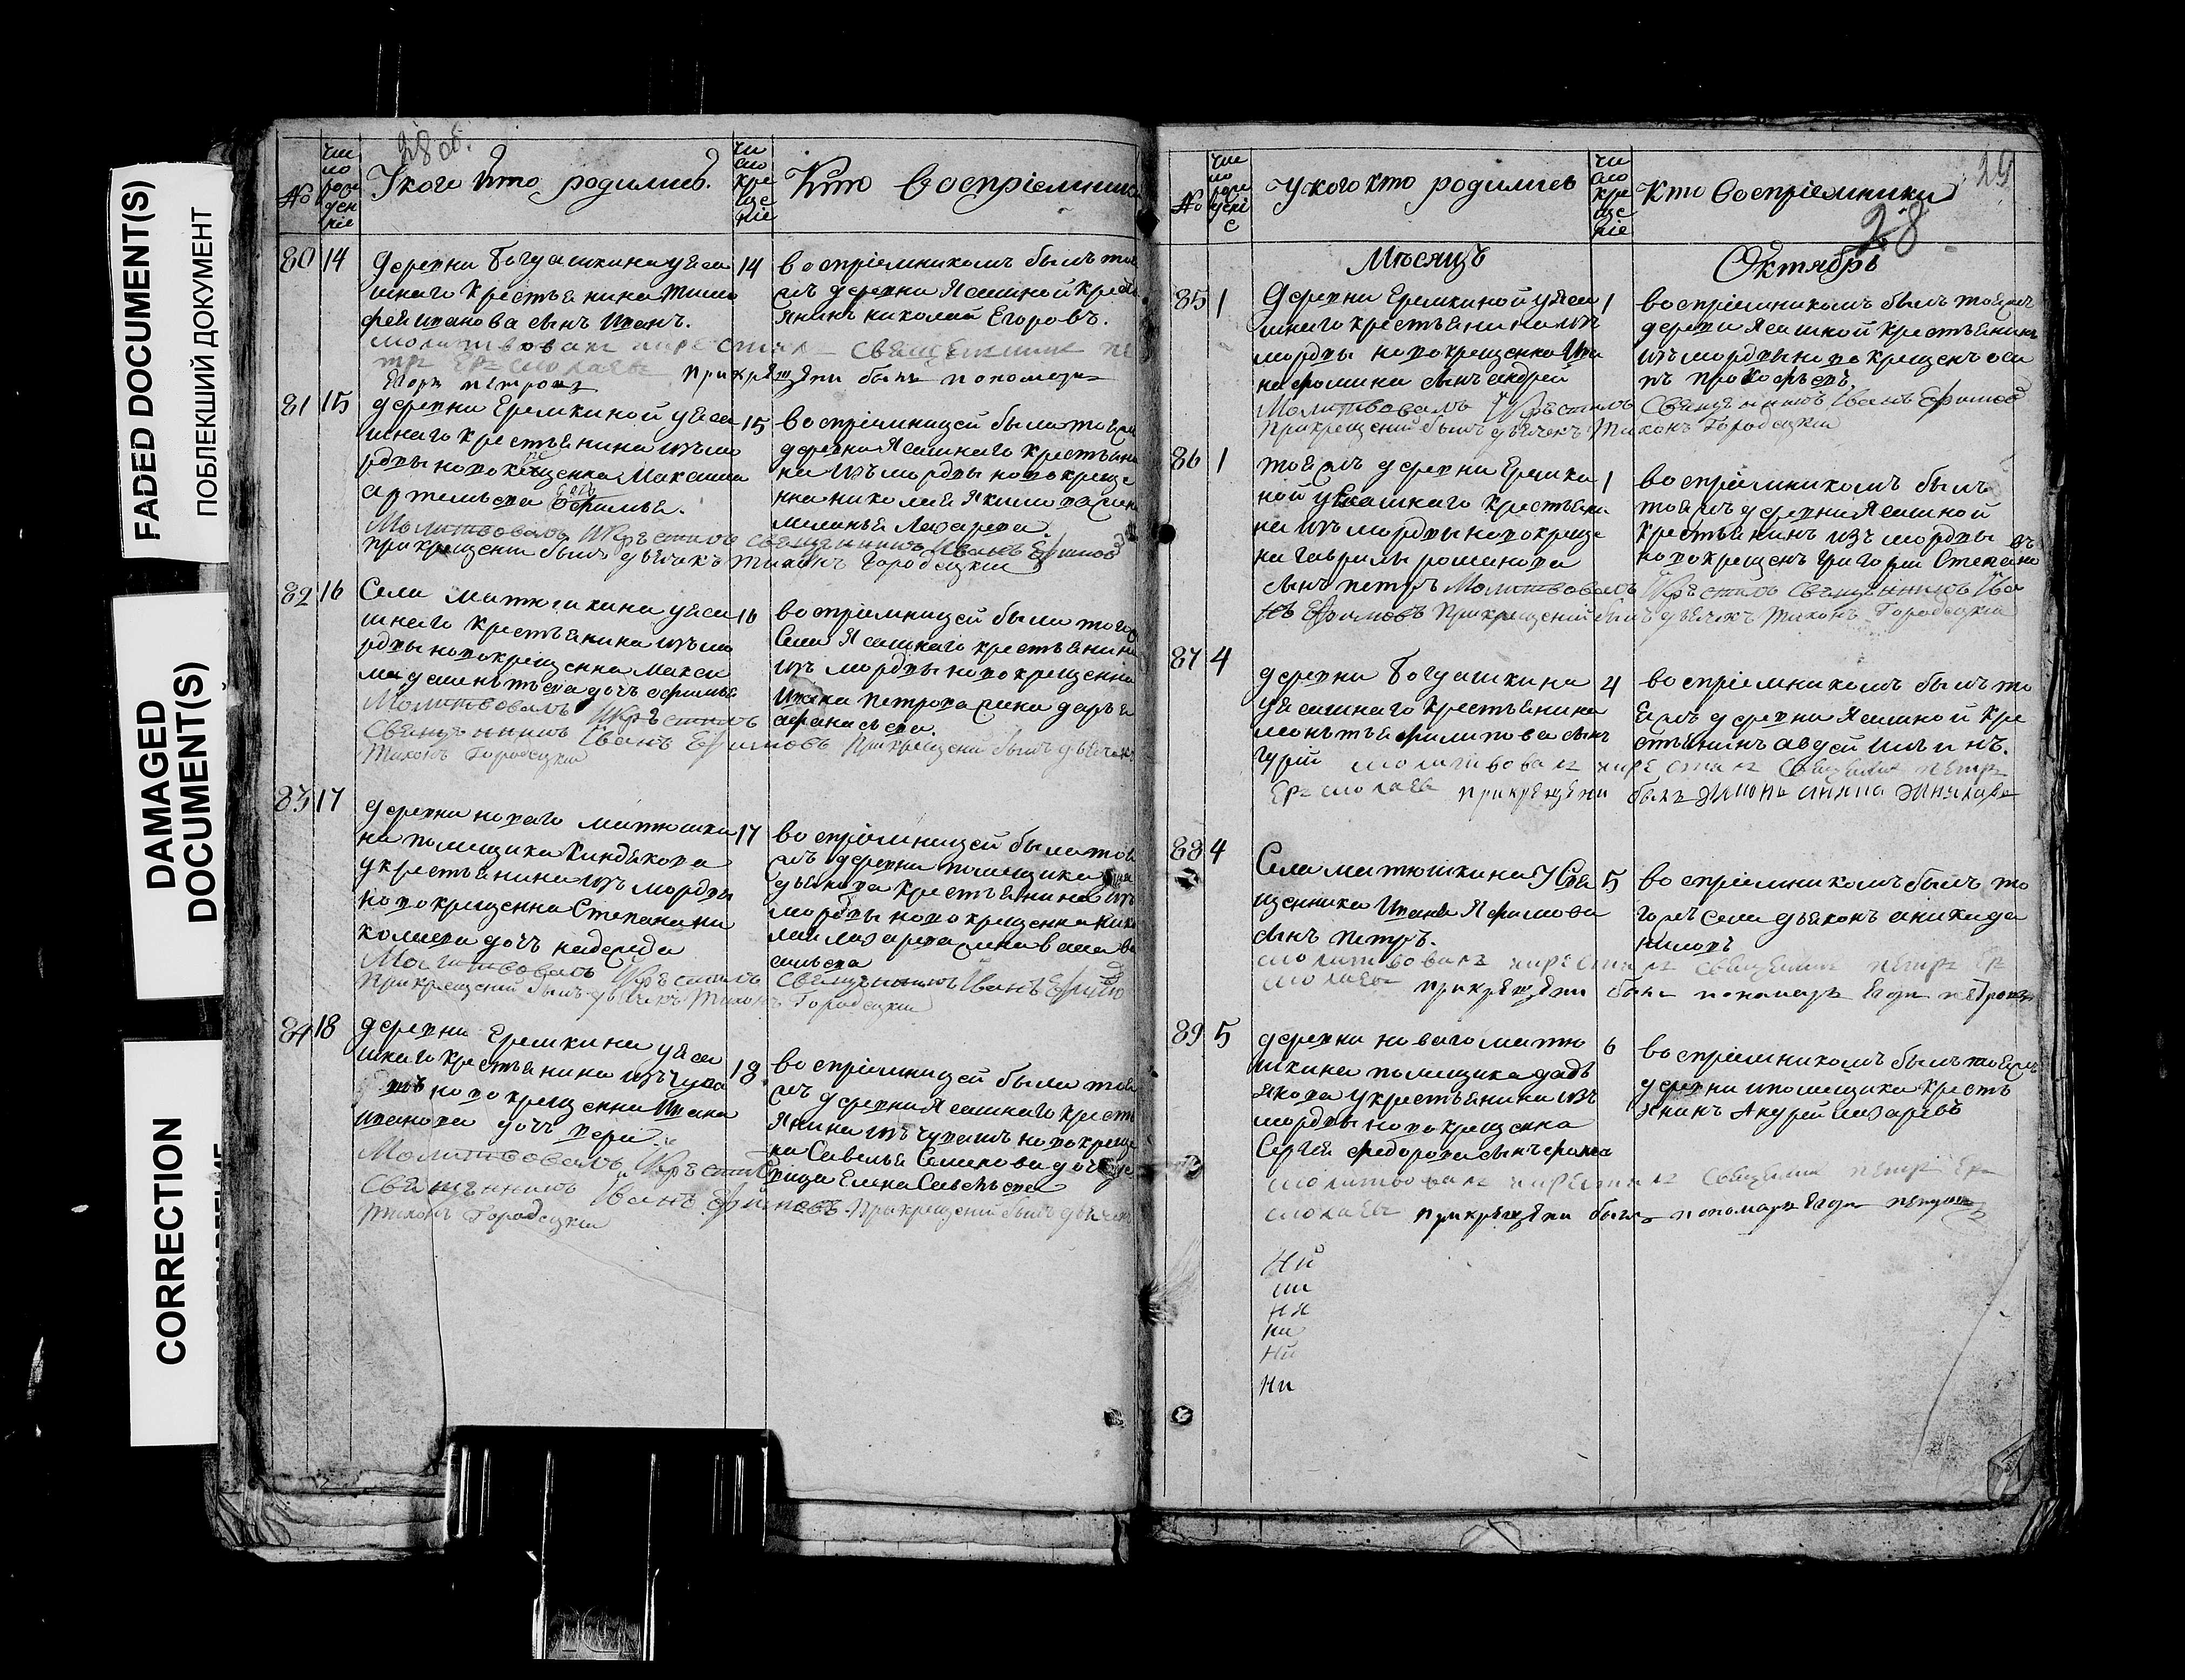 FADED DOCUMENT(S)
ПОБЛЕКШИЙ ДОКУМЕНТ
DAMAGED
DOCUMENT(S)
CORRECTION
28 об.
№
Число рождение
У кого кто родились.
Число крещение
Кто восприемники
80 14
деревни Богдашкина у яса
шнаго крестьянина Тимо
фея Иванова сынъ Иванъ.
молитвовалъ и крестилъ священникъ пе
тръ Ермолаевъ при крещени былъ пономарь
Егоръ Петровъ
14
восприемникомъ былъ тоя
жъ деревни ясашной кресть
янинъ николай Егоровъ.
81 15
деревни Еремкиной у яса
шнаго крестьянина изъ мо
рдвы новокрещенна Максима
Артемьева дочь Офимья.
Молитвовалъ и крѣстилъ священникъ Иванъ Ефимовъ
при крещении былъ дьячекъ Тихонъ Городецкий
15
восприемницей была тоя жъ
деревни ясашнаго крестьяни
на изъ мордвы новокреще
нна николая Якимова жена
меланья Лазарева.
82 16
Села Матюшкина у яса
шнаго крестьянина изъ мо
рдвы новокрещенна Макси
ма дементьева дочь офимья
Молитвовалъ и крѣстилъ
священникъ Иванъ Ефимовъ При крещении былъ дьячекъ
Тихонъ Городецкий
16
восприемницей была того жъ
Села Ясашнаго крестьянина
изъ мордвы новокрещенна
Ивана петрова жена дарья
афанасьева.
83 17
деревни новаго матюшки
на помещика Киндякова
у крестьянина изъ мордвы
новокрещенна Степана ни
колаева дочь надежда
Молитвовалъ и крѣстилъ священникъ Иванъ Ефимовъ
При крещении былъ дьячекъ Тихонъ Городецкий
17
восприемницей была тоя
жъ деревни помещика Кин
дякова крестьянина изъ
мордвы новокрещенна нико
лая лазарева жена васи
льева
84 18
деревни Еремкина у яса
шнаго крестьянина изъ чува
шъ новокрещенна Ивана
иванова дочь вера.
Молитвовалъ и крѣстилъ
священникъ Иванъ Ефимовъ. При крещении былъ дьячекъ
Тихонъ Городецкий
18
восприемницей была тоя
жъ деревни Ясашнаго кресть
янина изъ чувашъ новокреще
на Савелья Семенова дочь де
вица Елена Савельева
29
28
№
Число рождение
У кого кто родились
Число крещение
Кто восприемники
Месяцъ Октябрь
85 1
Деревни Еремкиной у яса
шнаго крестьянина изъ
мордвы новокрещенна Ива
на фомина сынъ андрей
Молитвовалъ и крѣстилъ Священникъ Иванъ Ефимовъ
При крещении былъ дьячекъ Тихонъ Городецкий
1
восприемникомъ былъ тоя жъ
деревни Ясашной крестьянинъ
изъ мордвы новокрещенъ оси
пъ прокофьевъ.
86 1
тоя жъ деревни Еремки
ной у Ясашнаго крестьяни
на изъ мордвы новокреще
на гаврилы романова
сынъ петръ Молитвовалъ и крѣстилъ Священникъ Ива
нъ Ефимовъ При крещении былъ дьячекъ Тихонъ Городецкий
1
восприемникомъ былъ
тоя жъ деревни Ясашной
крестьянинъ изъ мордвы
новокрещенъ григорий Степановъ
87 4
деревни Богдашкина
у ясашнаго крестьянина
леонтья филипова сынъ
гурий молитвовалъ и крестилъ священникъ петръ
Ермолаевъ при крещени былъ
4
восприемникомъ былъ то
я жъ деревни Ясашной кре
стьянинъ авдей ильинъ.
88 4
Села матюшкина У Свя
щенника Ивана Яфимова
сынъ петръ.
молитвовалъ и крестилъ священникъ петръ Ер
молаевъ при крещени былъ пономарь Егоръ петровъ
5
восприемникомъ былъ то
гожъ села дьяконъ аника да
ниловъ
89 5
деревни новаго матю
шкина помещика дадь
якова у крестьянина изъ
мордвы новокрещена
Сергея федорова сынъ фома
молитвовалъ и крестилъ священникъ петръ Ер
молаевъ при крещени былъ пономарь Егоръ петровъ
6
восприемникомъ былъ тоя жъ
деревни и помещика кресть
янинъ Андрей лазаревъ